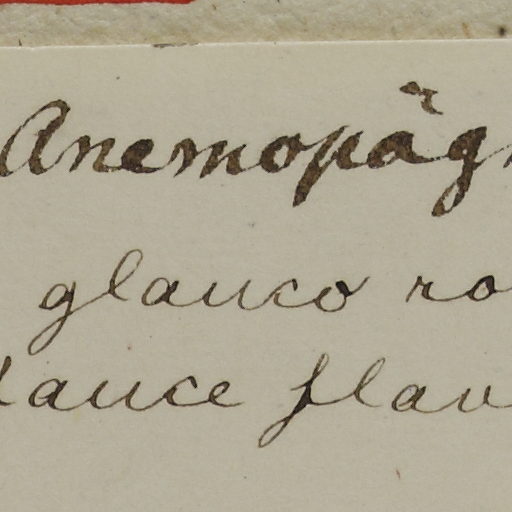 Anemopäg
glauco ro
lauce flav